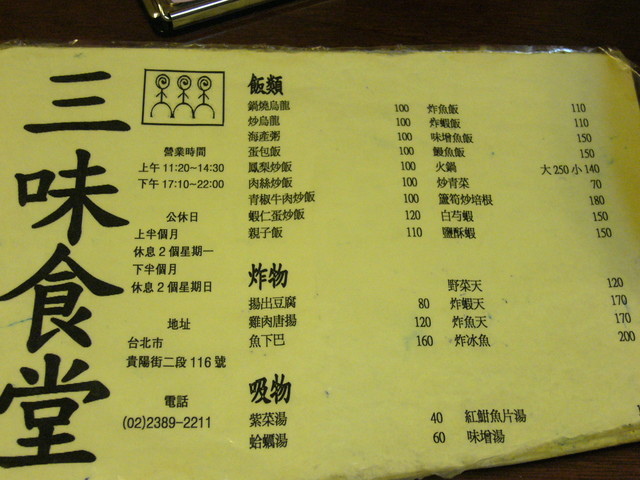 三味食堂
營業時間
上午 11:20~14:30
下午 17:10~22:00
公休日
上半個月
休息 2 個星期一
下半個月
休息 2 個星期日
地址
台北市
貴陽街二段 116 號
電話
(02)2389-2211
飯類
鍋燒烏龍 100 炸魚飯 110
炒烏龍 100 炸蝦飯 110
海產粥 100 味增魚飯 150
蛋包飯 100 鰻魚飯 150
鳳梨炒飯 100 火鍋 大 250 小 140
肉絲炒飯 100 炒青菜 70
青椒牛肉炒飯 100 蘆筍炒培根 180
蝦仁蛋炒飯 120 白芍蝦 150
親子飯 110 鹽酥蝦 150
炸物 野菜天 120
揚出豆腐 80 炸蝦天 170
雞肉唐揚 120 炸魚天 170
魚下巴 160 炸冰魚 200
吸物
紫菜湯 40 紅魽魚片湯
蛤蠣湯 60 味增湯